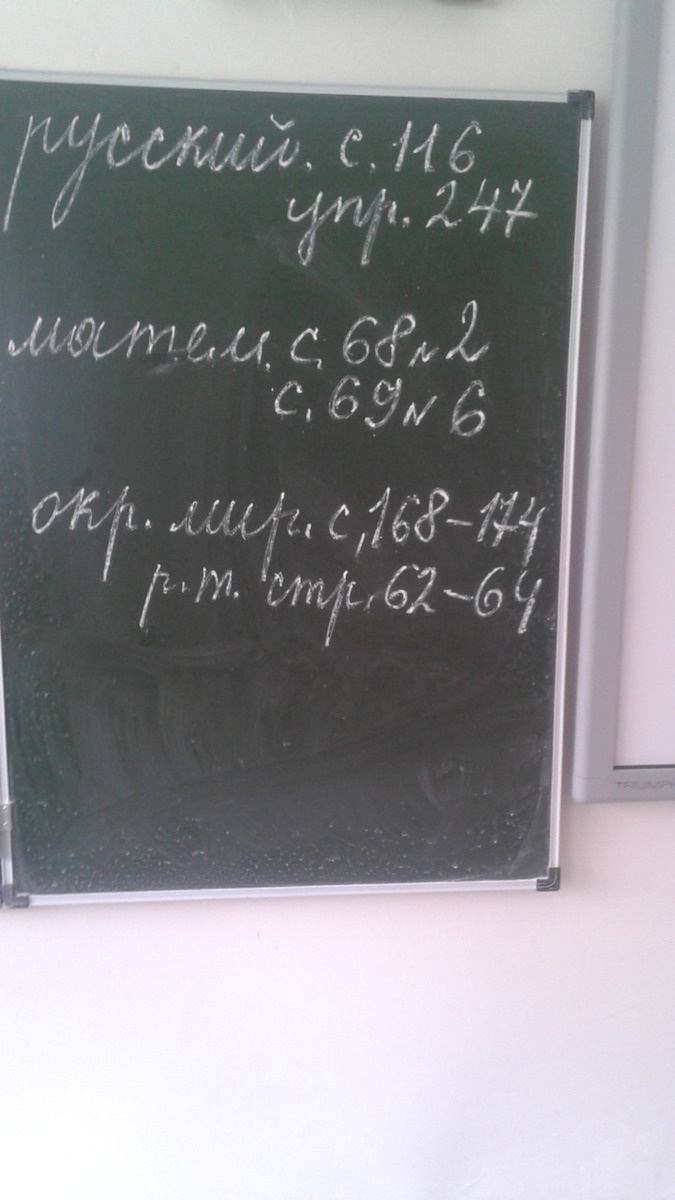 русский. с. 116
упр. 247
матем. с. 68 № 2
с. 69 № 6
окр. мир. с. 168-174
р.т. стр. 62-64